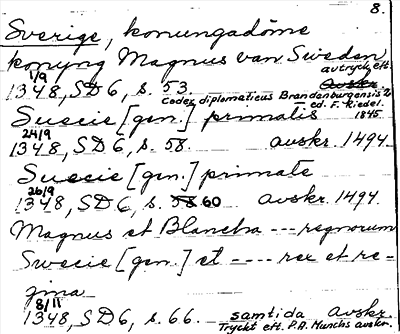 8.
Sverige, konungadöme
konyng Magnus van Sweden
1/9 avtryck eft.
1348, SD 6, s. 53. Avskr.
Codex diplomaticus Brandenburgensis 2
ed. F. Riedel.
Suecie [gen.] primalis 1845
24/9
1348, SD 6, s. 58. avskr. 1494.
Suecie [gen.] primate
26/9
1348, SD 6, s. 58 60 avskr. 1494.
Magnus et Blancha --- regnorum
Swecie [gen.] et ---- rex et re-
gina
8/11
1348, SD 6, s. 66. samtida avskr.
Tryckt eft. P.A. Munchs avskr.